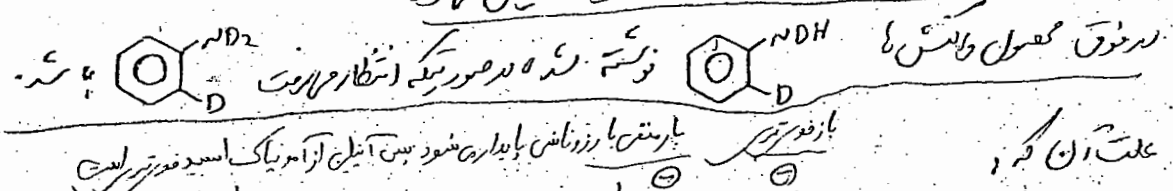 در فوق محصول واکنش ها NDH D نوشته شده در صورتیکه انتظار میرفت ND2 D باشد.
علت آن که: باز قوی تری بار منفی با رزونانس پایدار می شود پس آنیلین از آمونیاک اسید قوی تری است
⊖ ⊖